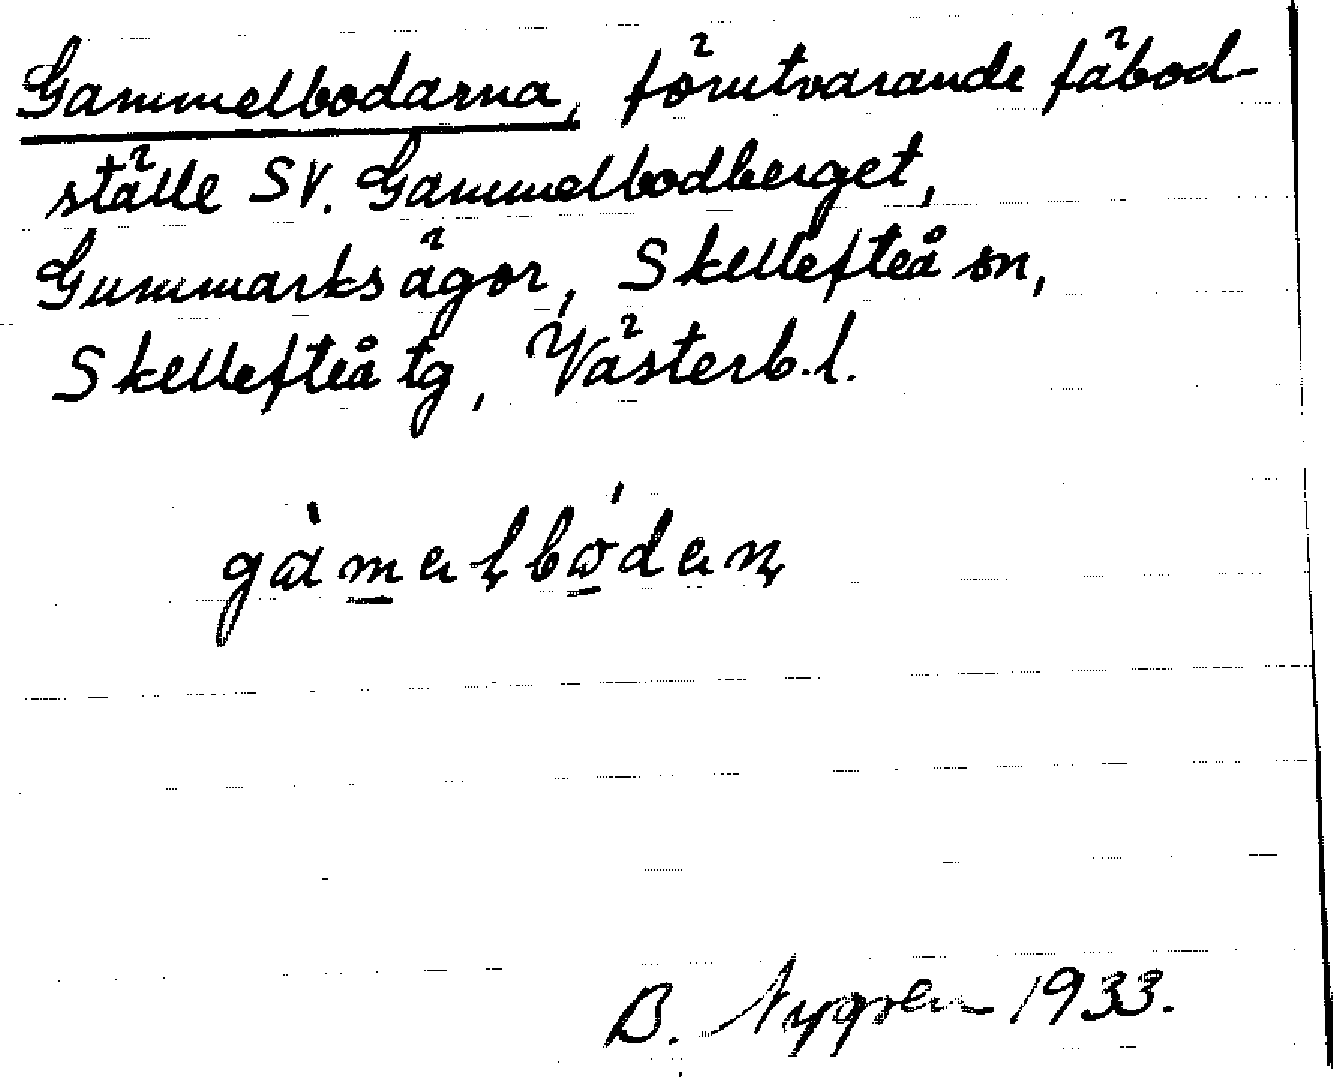 Gammelbodarna, förutvarande fäbod-
ställe SV. Gammelbodberget,
Gummarks ägor, Skellefteå sn,
Skellefteå tg, Västerb. l.
B. Nygren 1933.